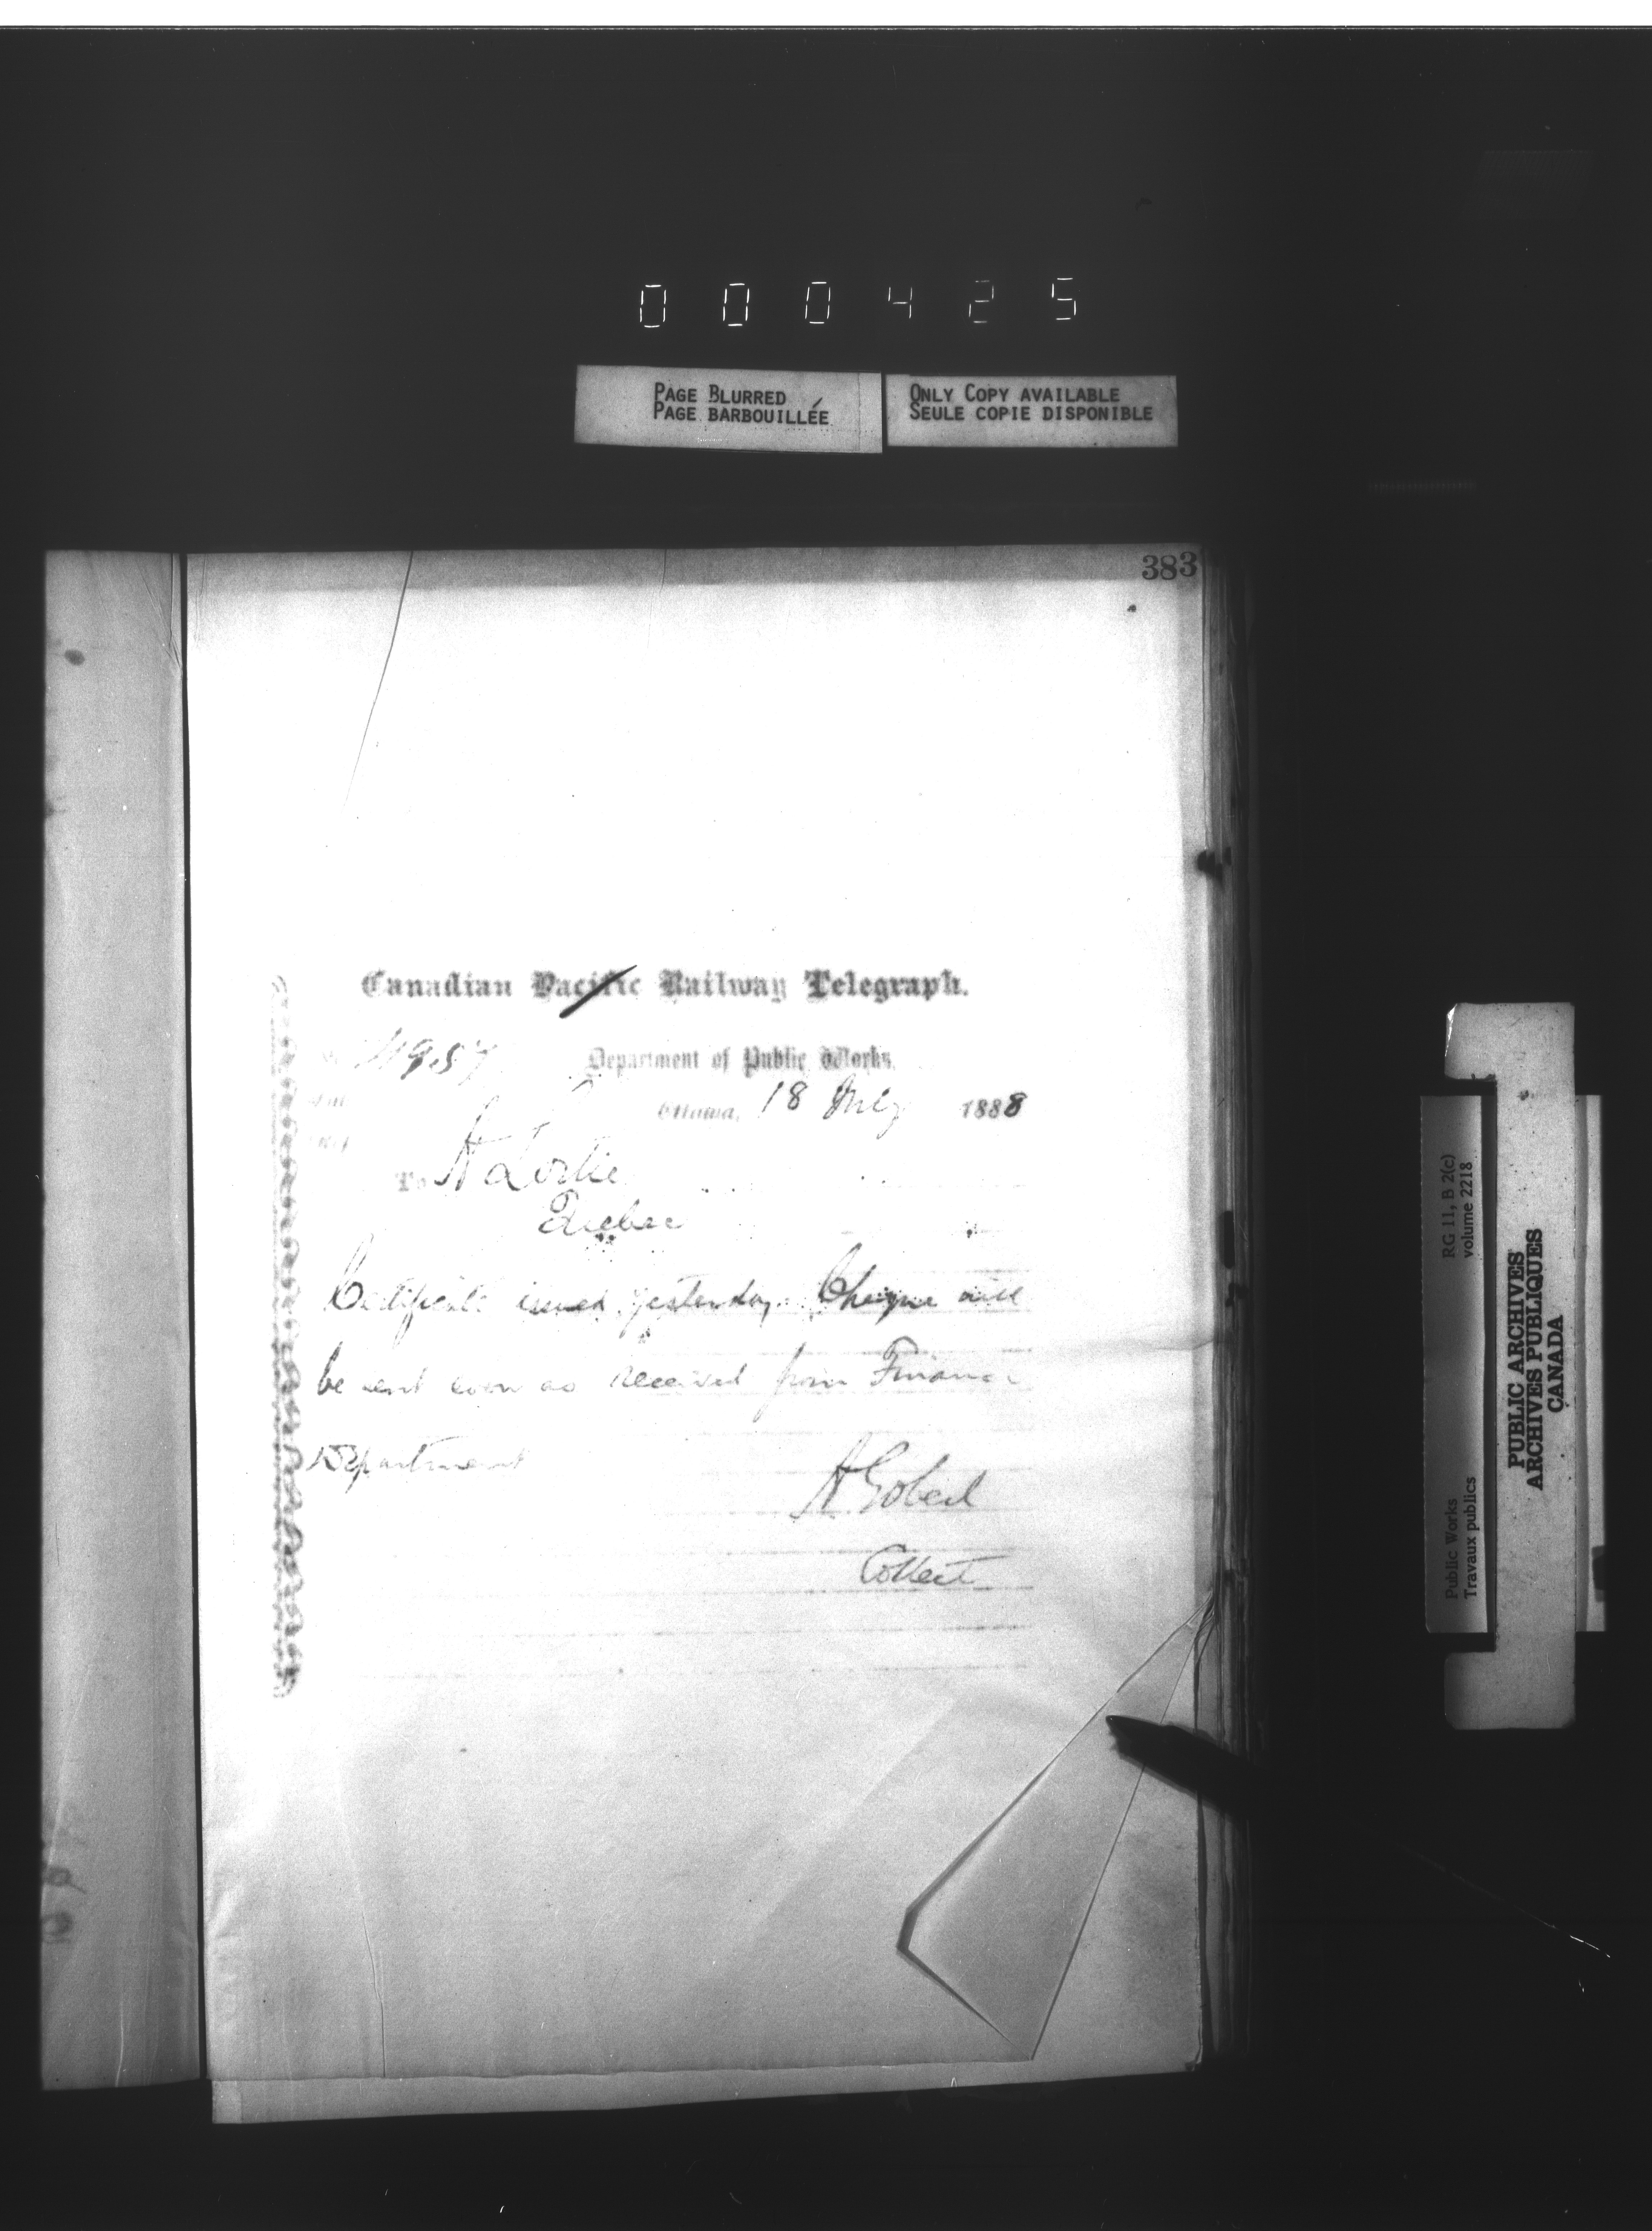 000425
PAGE BLURRED
PAGE BARBOUILLÉE
ONLY COPY AVAILABLE
SEULE COPIE DISPONIBLE
383
Canadian Pacific Railway Telegraph.
Department of Public Works.
Ottawa, 18 July 1888
To A Lortie
Quebec
Certificate issued yesterday. Cheque will
be sent soon as received from Finance
Department
A Gobeil
Collect
RG 11, B 2(c)
volume 2218
Public Works
Travaux publics
PUBLIC ARCHIVES
ARCHIVES PUBLIQUES
CANADA